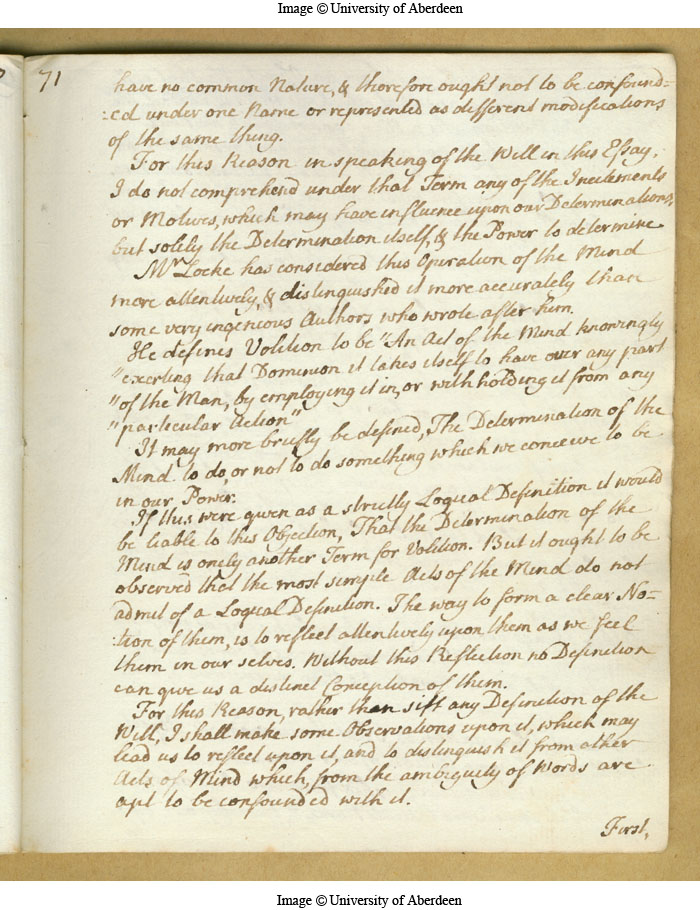 Image © University of Aberdeen
71
have no common Nature, & therefore ought not to be confound=
:ed under one Name or represented as different modifications
of the same thing.
For this Reason in speaking of the Will in this Essay,
I do not comprehend under that Term any of the Incitements
or Motives, which may have influence upon our Determinations,
but solely the Determination itself, & the Power to determine
Mr Locke has considered this Operation of the Mind
more attentively, & distinguished it more accurately than
some very ingenious Authors who wrote after him.
He defines Volition to be "An Act of the Mind knowingly
"exerting that Dominion it takes itself to have over any part
"of the Man, by employing it in, or withholding it from any
"particular Action"
It may more briefly be defined, The Determination of the
Mind to do, or not to do something which we conceive to be
in our Power.
If this were given as a strictly Logical Definition it would
be liable to this Objection, That the Determination of the
Mind is onely another Term for Volition. But it ought to be
observed that the most simple Acts of the Mind do not
admit of a Logical Definition. The way to form a clear No=
:tion of them, is to reflect attentively upon them as we feel
them in our selves. Without this Reflection no Definition
can give us a distinct Conception of them.
For this Reason, rather than sift any Definition of the
Will, I shall make some Observations upon it, which may
lead us to reflect upon it, and to distinguish it from other
Acts of Mind which, from the ambiguity of Words are
apt to be confounded with it.
First,
Image © University of Aberdeen